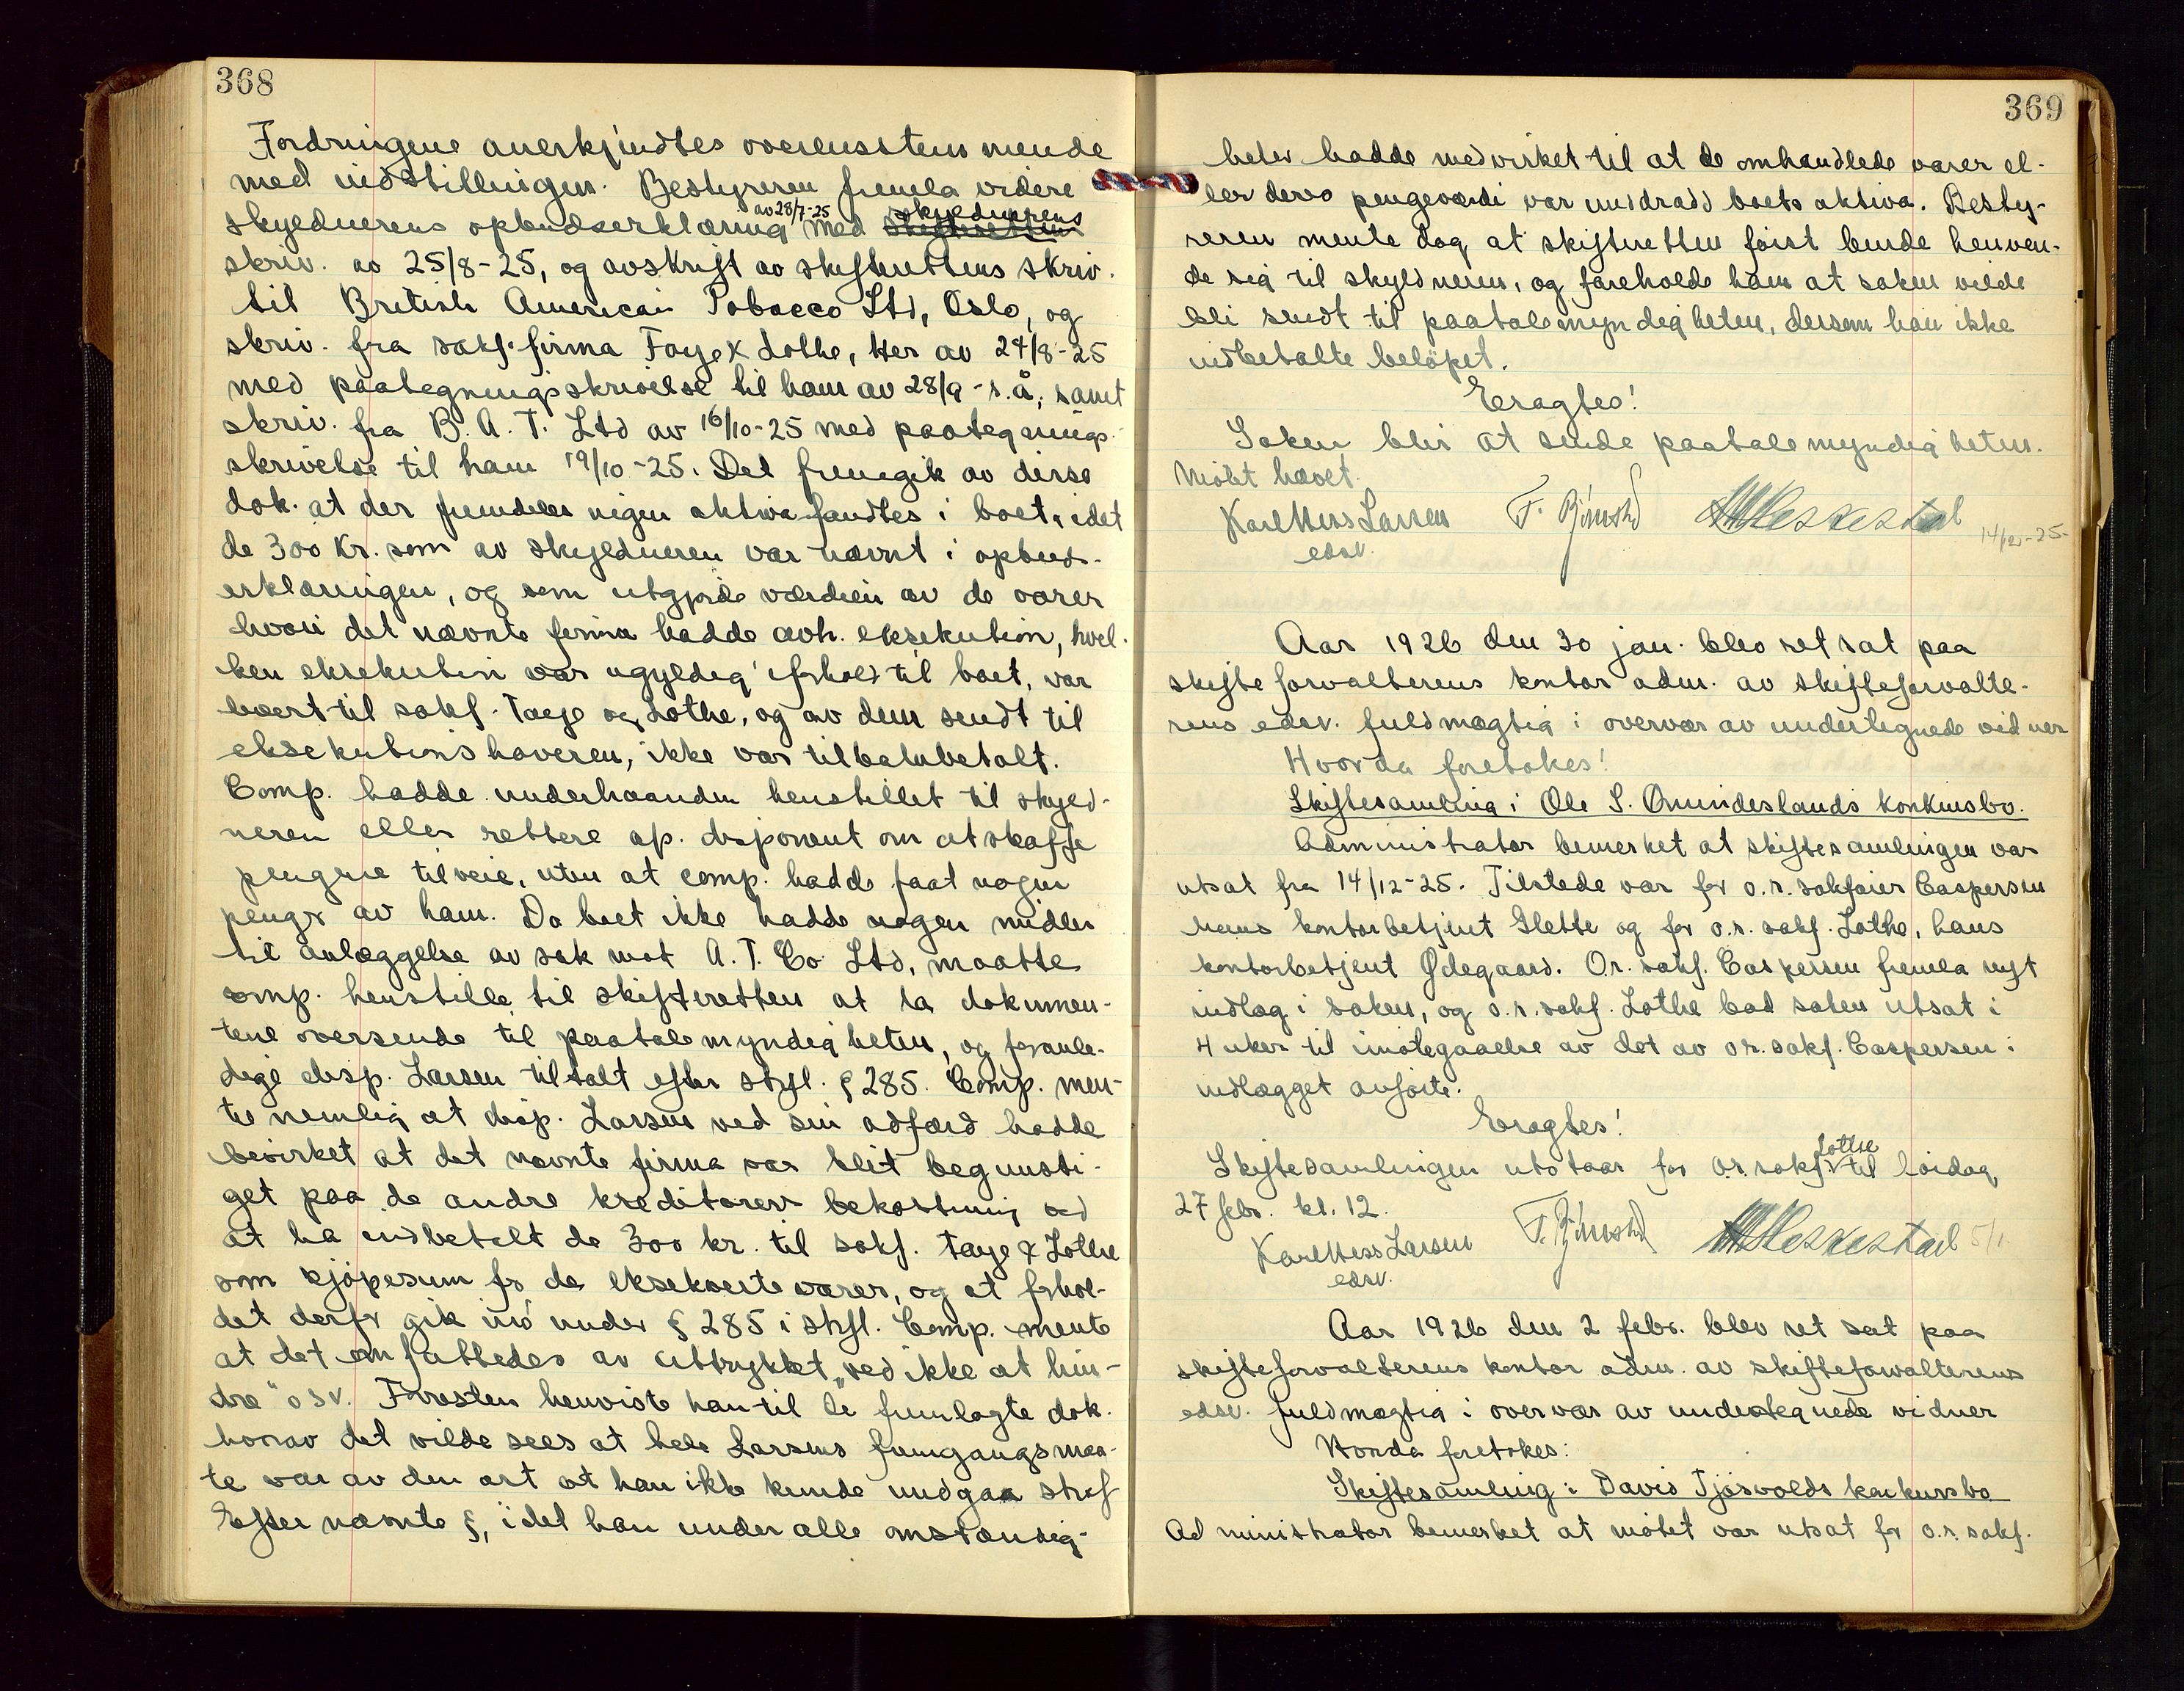 368
Fordringene anerkjendtes overensstemmende
med indstillingen. Bestyreren fremla videre
skyldnerens opbudserklæring av 28/7-25 med skyldnerens
skriv. av 25/8-25, og avskrift av skifterettens skriv.
til British American Tobacco Ltd, Oslo, og
skriv. fra sakf. firma Faye & Lothe, Her av 24/8-25
med paategningsskrivelse til ham av 28/9 - s.å, samt
skriv. fra B. A. T. Ltd av 16/10-25 med paategnings-
skrivelse til ham 19/10-25. Det fremgik av disse
dok. at der fremdeles ingen aktiva fandtes i boet, idet
de 300 Kr. som av skyldneren var nævnt i opbuds-
erklæringen, og som utgjorde værdien av de varer
hvori det nævnte firma hadde avh. eksekution, hvel-
ken eksekution var ugyldig i forhold til boet, var
levert til sakf. Faye og Lothe, og av dem sendt til
eksekutionshaveren, ikke var tilbakebetalt.
Comp. hadde underhaanden henstillet til skyld-
neren eller rettere op. disponent om at skaffe
pengene tilveie, uten at comp. hadde faat nogen
penger av ham. Da boet ikke hadde nogen midler
til anlæggelse av sak mot A. T. Co Ltd, maatte
comp. henstille til skifteretten at la dokumen-
tene oversende til paatalemyndigheten, og foranle-
dige disp. Larsen tiltalt efter strfl. § 285. Comp. men-
te nemlig at disp. Larsen ved sin adfærd hadde
bevirket at det nævnte firma var blit begunsti-
get paa de andre kreditorers bekostning ved
at ha indbetalt de 300 kr. til sakf. Faye & Lothe
som kjøpesum for de eksekverte varer, og at forhol-
det derfor gik ind under § 285 i strfl. Comp. mente
at det omfattedes av uttrykket „ved ikke at hin-
dre" osv. Forresten henviste han til de fremlagte dok.
hvorav det vilde sees at hele Larsens fremgangsmaa-
te var av den art at han ikke kunde undgaa straf
Efter nævnte §, idet han under alle omstændig-
369
heter hadde medvirket til at de omhandlede varer el-
ler deres pengeværdi var unddradd boets aktiva. Besty-
reren mente dog at skifteretten først burde henven-
de sig til skyldneren, og foreholde ham at saken vilde
bli sendt til paatalemyndigheten, dersom han ikke
indbetalte beløpet.
Eragtes!
Saken blir at sende paatalemyndigheten.
Møtet hævet.
Karl Hess Larsen
edsv.
14/12-25-
Aar 1926 den 30 jan. blev ret sat paa
skifteforvalterens kontor adm. av skifteforvalte-
rens edsv. fuldmægtig i overvær av undertegnede vidner
Hvorda foretokes!
Skiftesamling i Ole S. Omundeslands konkursbo.
Administrator bemerket at skiftesamlingen var
utsat fra 14/12-25. Tilstede var for o.r. sakfører Caspersen
hans kontorbetjent Slette og for o.r. sakf. Lothe, hans
kontorbetjent Ødegaard. O.r. sakf. Caspersen fremla nyt
indlæg i saken, og o.r. sakf. Lothe bad saken utsat i
4 uker til imøtegaaelse av det av o.r. sakf. Caspersen i
indlægget anførte.
Eragtes!
Skiftesamlingen utstaar for o.r. sakf. Lothe til lørdag
27 febr. kl. 12.
Karl Hess Larsen
edsv.
Aar 1926 den 2 febr. blev ret sat paa
skifteforvalterens kontor adm. av skifteforvalterens
edsv. fuldmægtig i overvær av undertegnede vidner
Hvorda foretokes:
Skiftesamling i David Tjøsvolds konkursbo
Administrator bemerket at møtet var utsat for o.r. sakf.